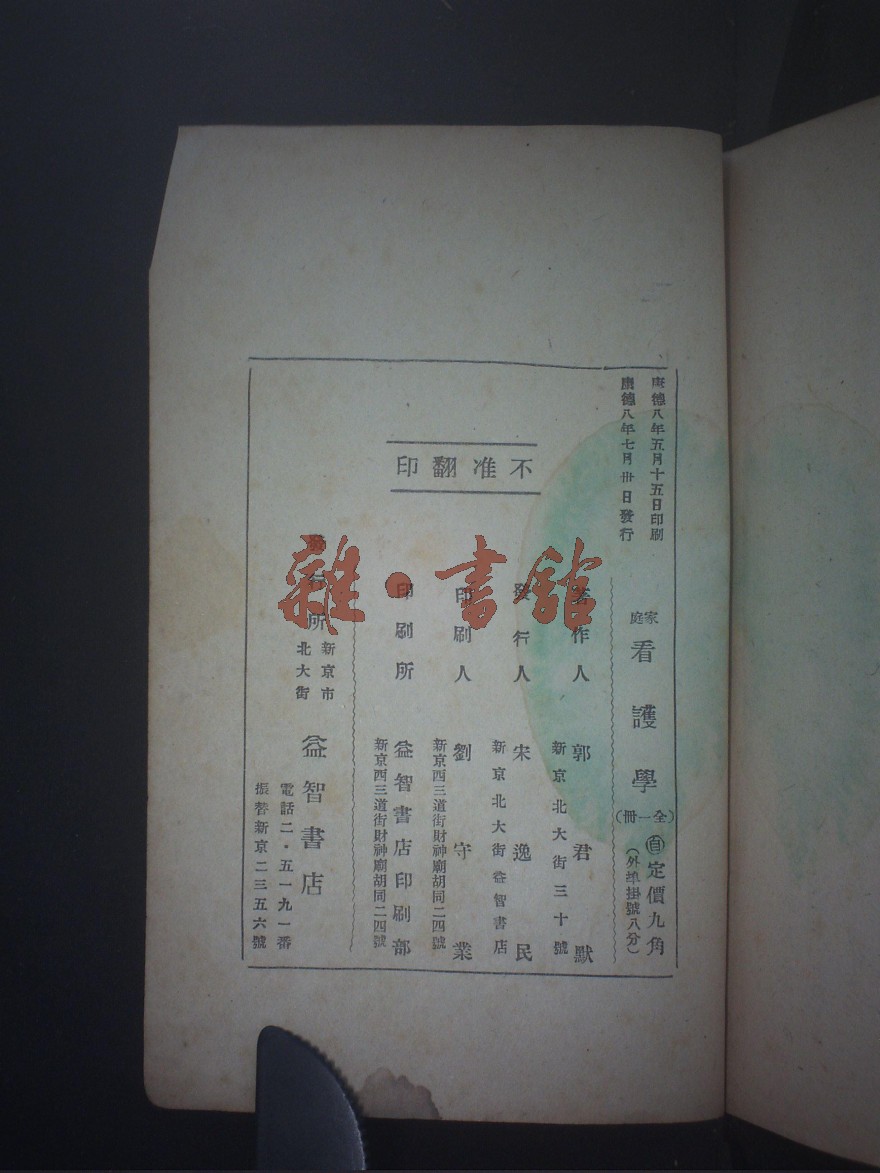 康德八年五月十五日印刷
康德八年七月卅日發行
不准翻印
家庭
看護學
(全一冊)
定價九角
(外埠掛號八分)
著作人 郭君默
新京北大街三十號
發行人 宋逸民
新京北大街益智書店
印刷人 劉守業
新京西三道街財神廟胡同二四號
印刷所 益智書店印刷部
新京西三道街財神廟胡同二四號
發行所
新京市
北大街
益智書店
電話二・五一九一番
振替新京二三五六號
雜・書館